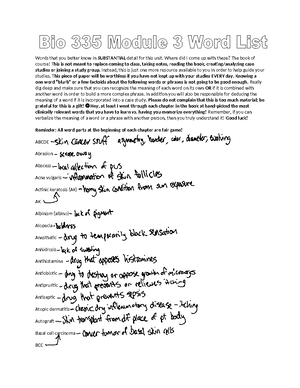 Bio 335 Module 3 Word List
Words that you better know in SUBSTANTIAL detail for this unit. Where did I come up with these? The book of
course! This is not meant to replace coming to class, taking notes, reading the book, creating/analyzing case
studies or joining a study group. Instead, this is just one more resource available to you in order to help guide your
studies. This piece of paper will be worthless if you have not kept up with your studies EVERY DAY. Knowing a
one word "blurb" or a few factoids about the following words or phrases is not going to be good enough. Really
dig deep and make sure that you can recognize the meaning of each word on its own OR if it is combined with
another word in order to build a more complex phrase. In addition you will also be responsible for deducing the
meaning of a word if it is incorporated into a case study. Please do not complain that this is too much material; be
grateful for this is a gift! Hey, at least I went through each chapter in the book and hand-picked the most
clinically relevant words that you have to learn vs. having you memorize everything! Remember, if you can
verbalize the meaning of a word or a phrase with another person, then you truly understand it! Good luck!
Reminder: All word parts at the beginning of each chapter are fair game!
ABCDE - skin cancer stuff asymmetry, border, color, diameter, evolving
Abrasion - scrape away
Abscess - local collection of pus
Acne vulgaris - inflammation of skin follicles
Actinic keratosis (AK) - horny skin condition from sun exposure
AK
Albinism (albino) - lack of pigment
Alopecia - baldness
Anesthetic - drug to temporarily block sensation
Anhidrosis - lack of sweating
Antihistamine - drug that opposes histamines
Antibiotic - drug to destroy or oppose growth of microorgs
Antipruritic - drug that prevents or relieves itching
Antiseptic - drug that prevents sepsis
Atopic dermatitis - chronic inflammatory disease - itching
Autograft - skin transplant from diff place of pt body
Basal cell carcinoma - cancer tumor of basal skin cells
BCC